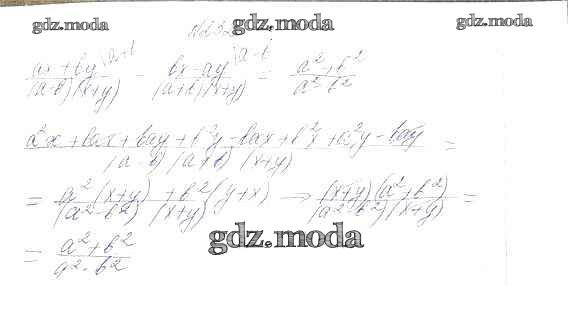 gdz.moda gdz.moda gdz.moda
(ax+by)/((a-b)(x+y)) |a+b - (bx-ay)/((a+b)(x+y)) |a-b = (a²+b²)/(a²-b²)
(a²x+bax+bay+b²y-bax+b²x+a²y-bay)/((a-b)(a+b)(x+y)) =
= (a²(x+y)+b²(y+x))/((a²-b²)(x+y)) → ((x+y)(a²+b²))/((a²-b²)(x+y)) =
gdz.moda
= (a²+b²)/(a²-b²)